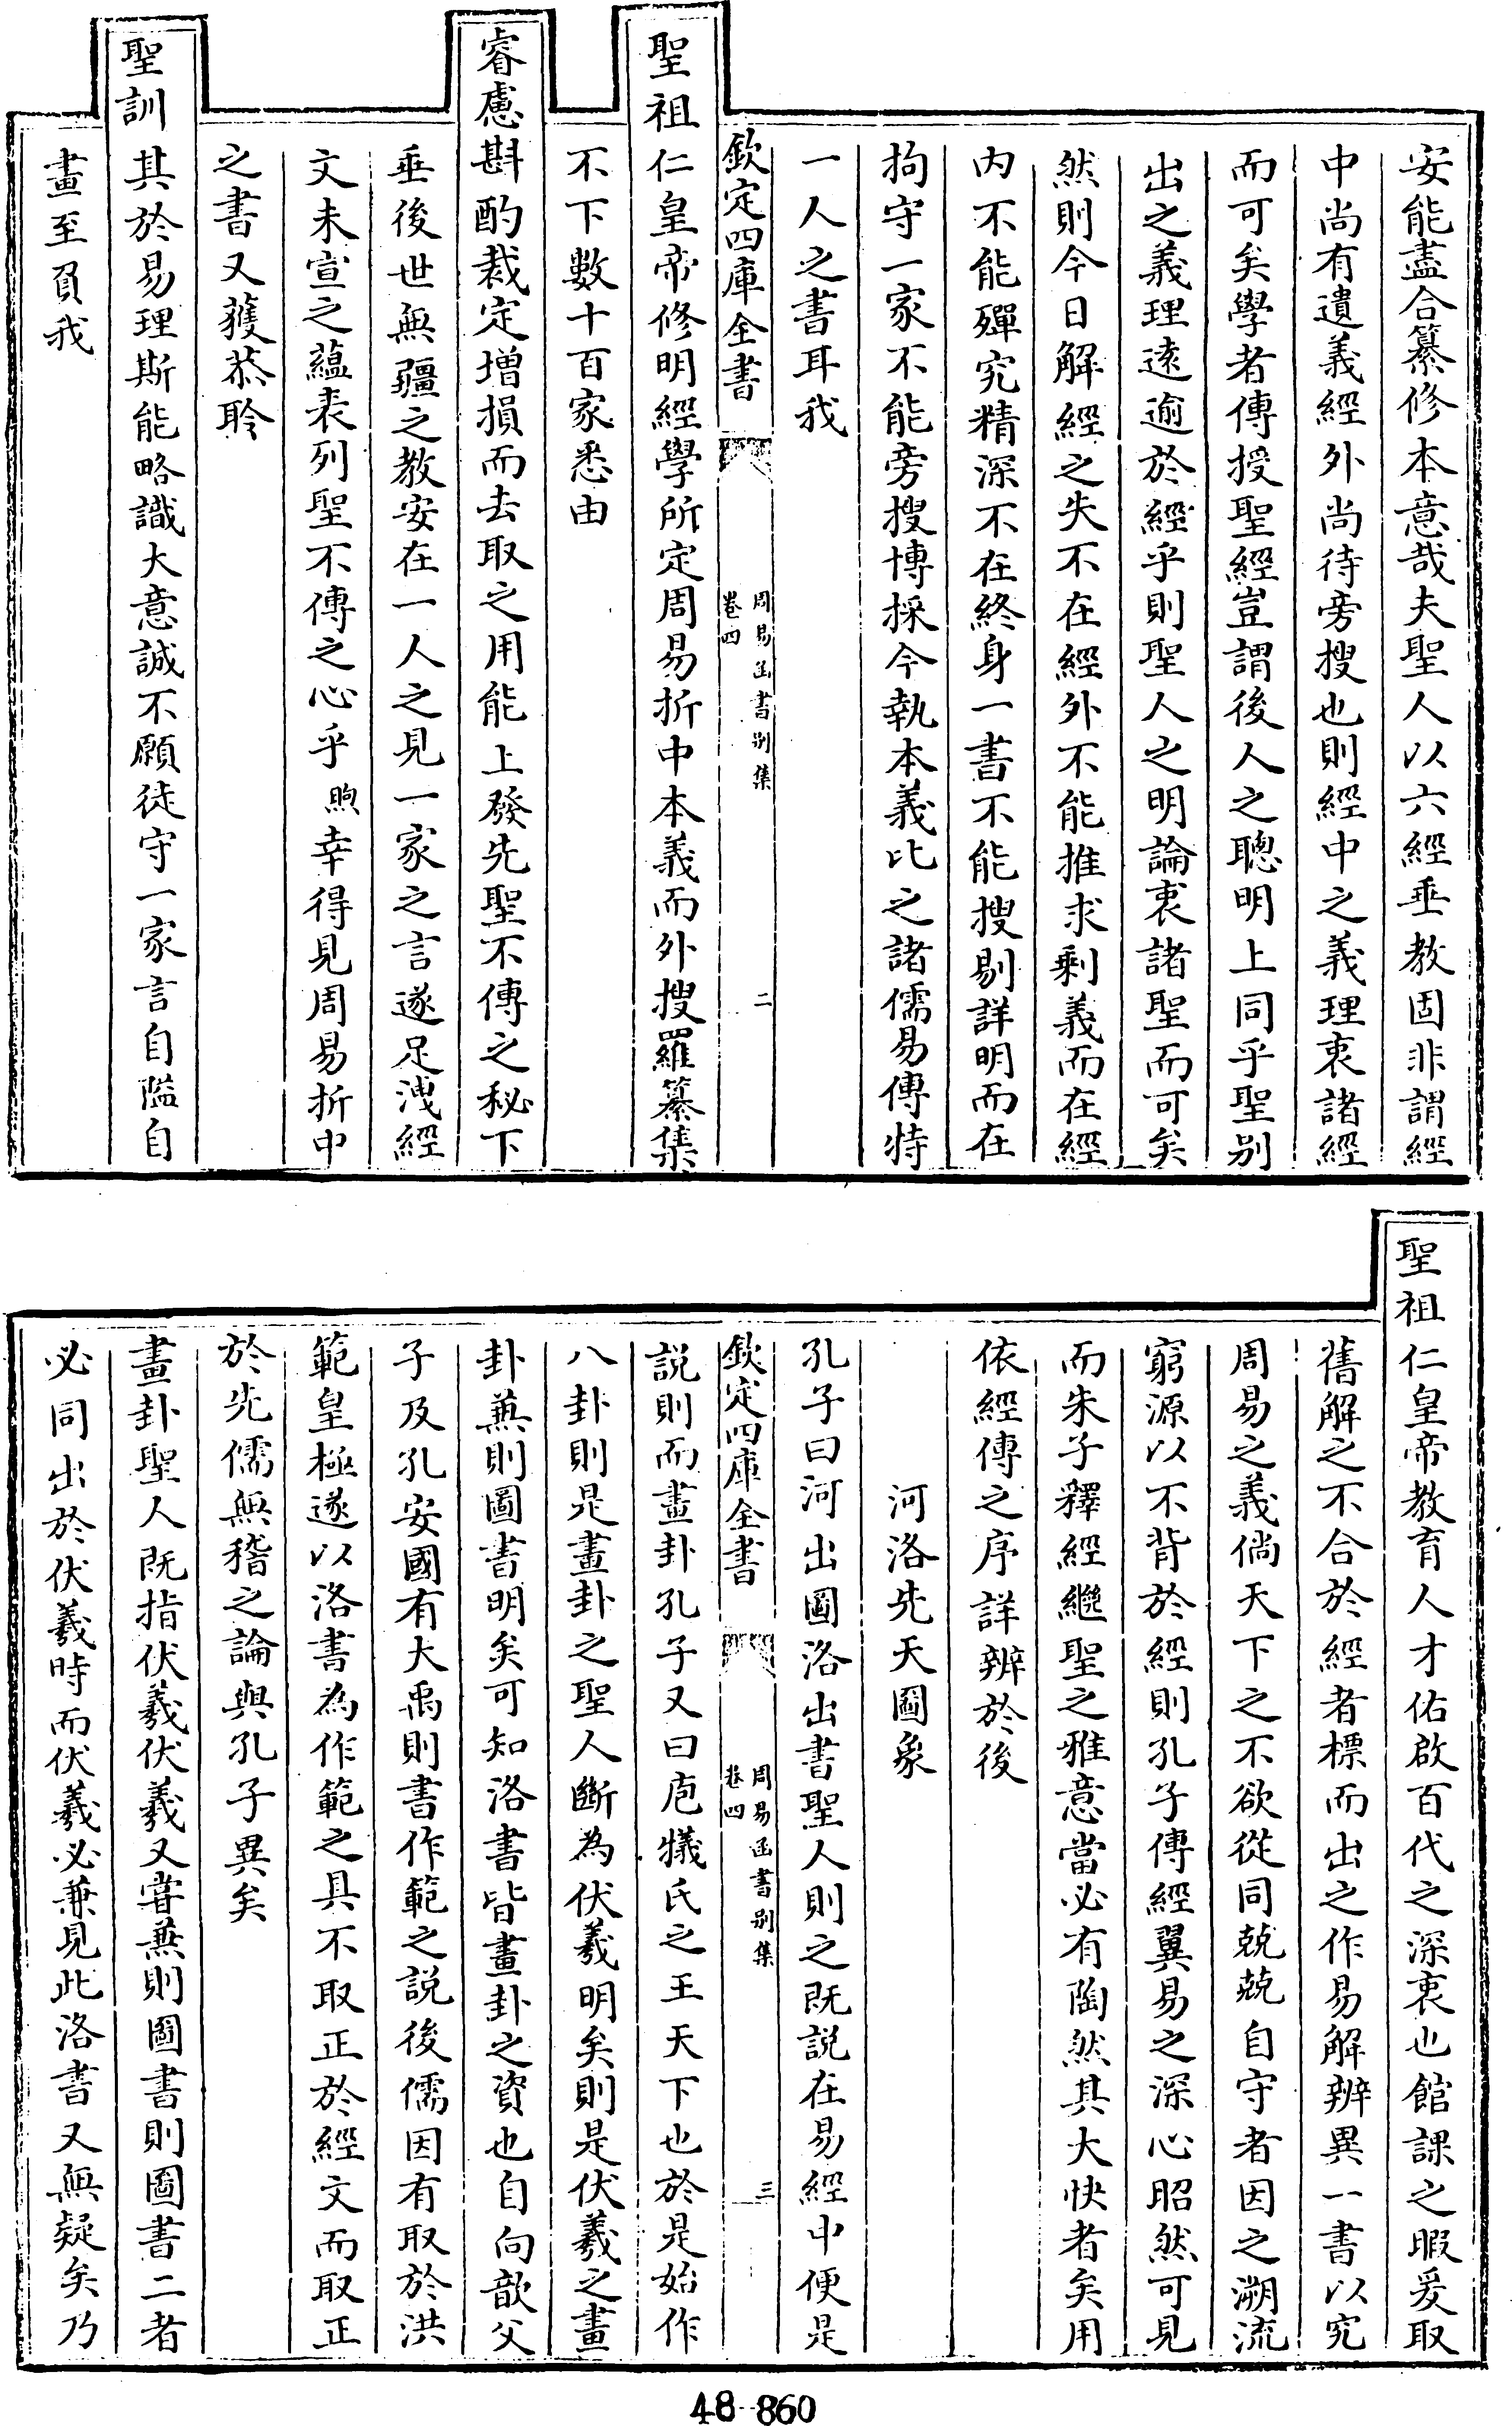 安能盡合纂修本意哉夫聖人以六經垂教固非謂經
中尚有遺義經外尚待旁搜也則經中之義理衷諸經
而可矣學者傳授聖經豈謂後人之聰明上同乎聖别
出之義理遠逾於經乎則聖人之明論衷諸聖而可矣
然則今日解經之失不在經外不能推求剩義而在經
内不能殫究精深不在終身一書不能搜剔詳明而在
拘守一家不能旁搜博採今執本義比之諸儒易傳特
一人之書耳我
欽定四庫全書
周易函書别集
卷四
二
聖祖仁皇帝修明經學所定周易折中本義而外搜羅纂集
不下數十百家悉由
睿慮斟酌裁定增損而去取之用能上發先聖不傳之秘下
垂後世無疆之教安在一人之見一家之言遂足洩經
文未宣之蘊表列聖不傳之心乎煦幸得見周易折中
之書又獲恭聆
聖訓其於易理斯能略識大意誠不願徒守一家言自隘自
畫至負我
聖祖仁皇帝教育人才佑啟百代之深衷也館課之暇爰取
舊解之不合於經者標而出之作易解辨異一書以究
周易之義倘天下之不欲從同兢兢自守者因之溯流
窮源以不背於經則孔子傳經翼易之深心昭然可見
而朱子釋經繼聖之雅意當必有陶然其大快者矣用
依經傳之序詳辨於後
河洛先天圖象
孔子曰河出圖洛出書聖人則之既説在易經中便是
欽定四庫全書
周易函書别集
卷四
三
説則而畫卦孔子又曰庖犧氏之王天下也於是始作
八卦則是畫卦之聖人斷為伏羲明矣則是伏羲之畫
卦兼則圖書明矣可知洛書皆畫卦之資也自向歆父
子及孔安國有大禹則書作範之説後儒因有取於洪
範皇極遂以洛書為作範之具不取正於經文而取正
於先儒無稽之論與孔子異矣
畫卦聖人既指伏羲伏羲又嘗兼則圖書則圖書二者
必同出於伏羲時而伏羲必兼見此洛書又無疑矣乃
48-860